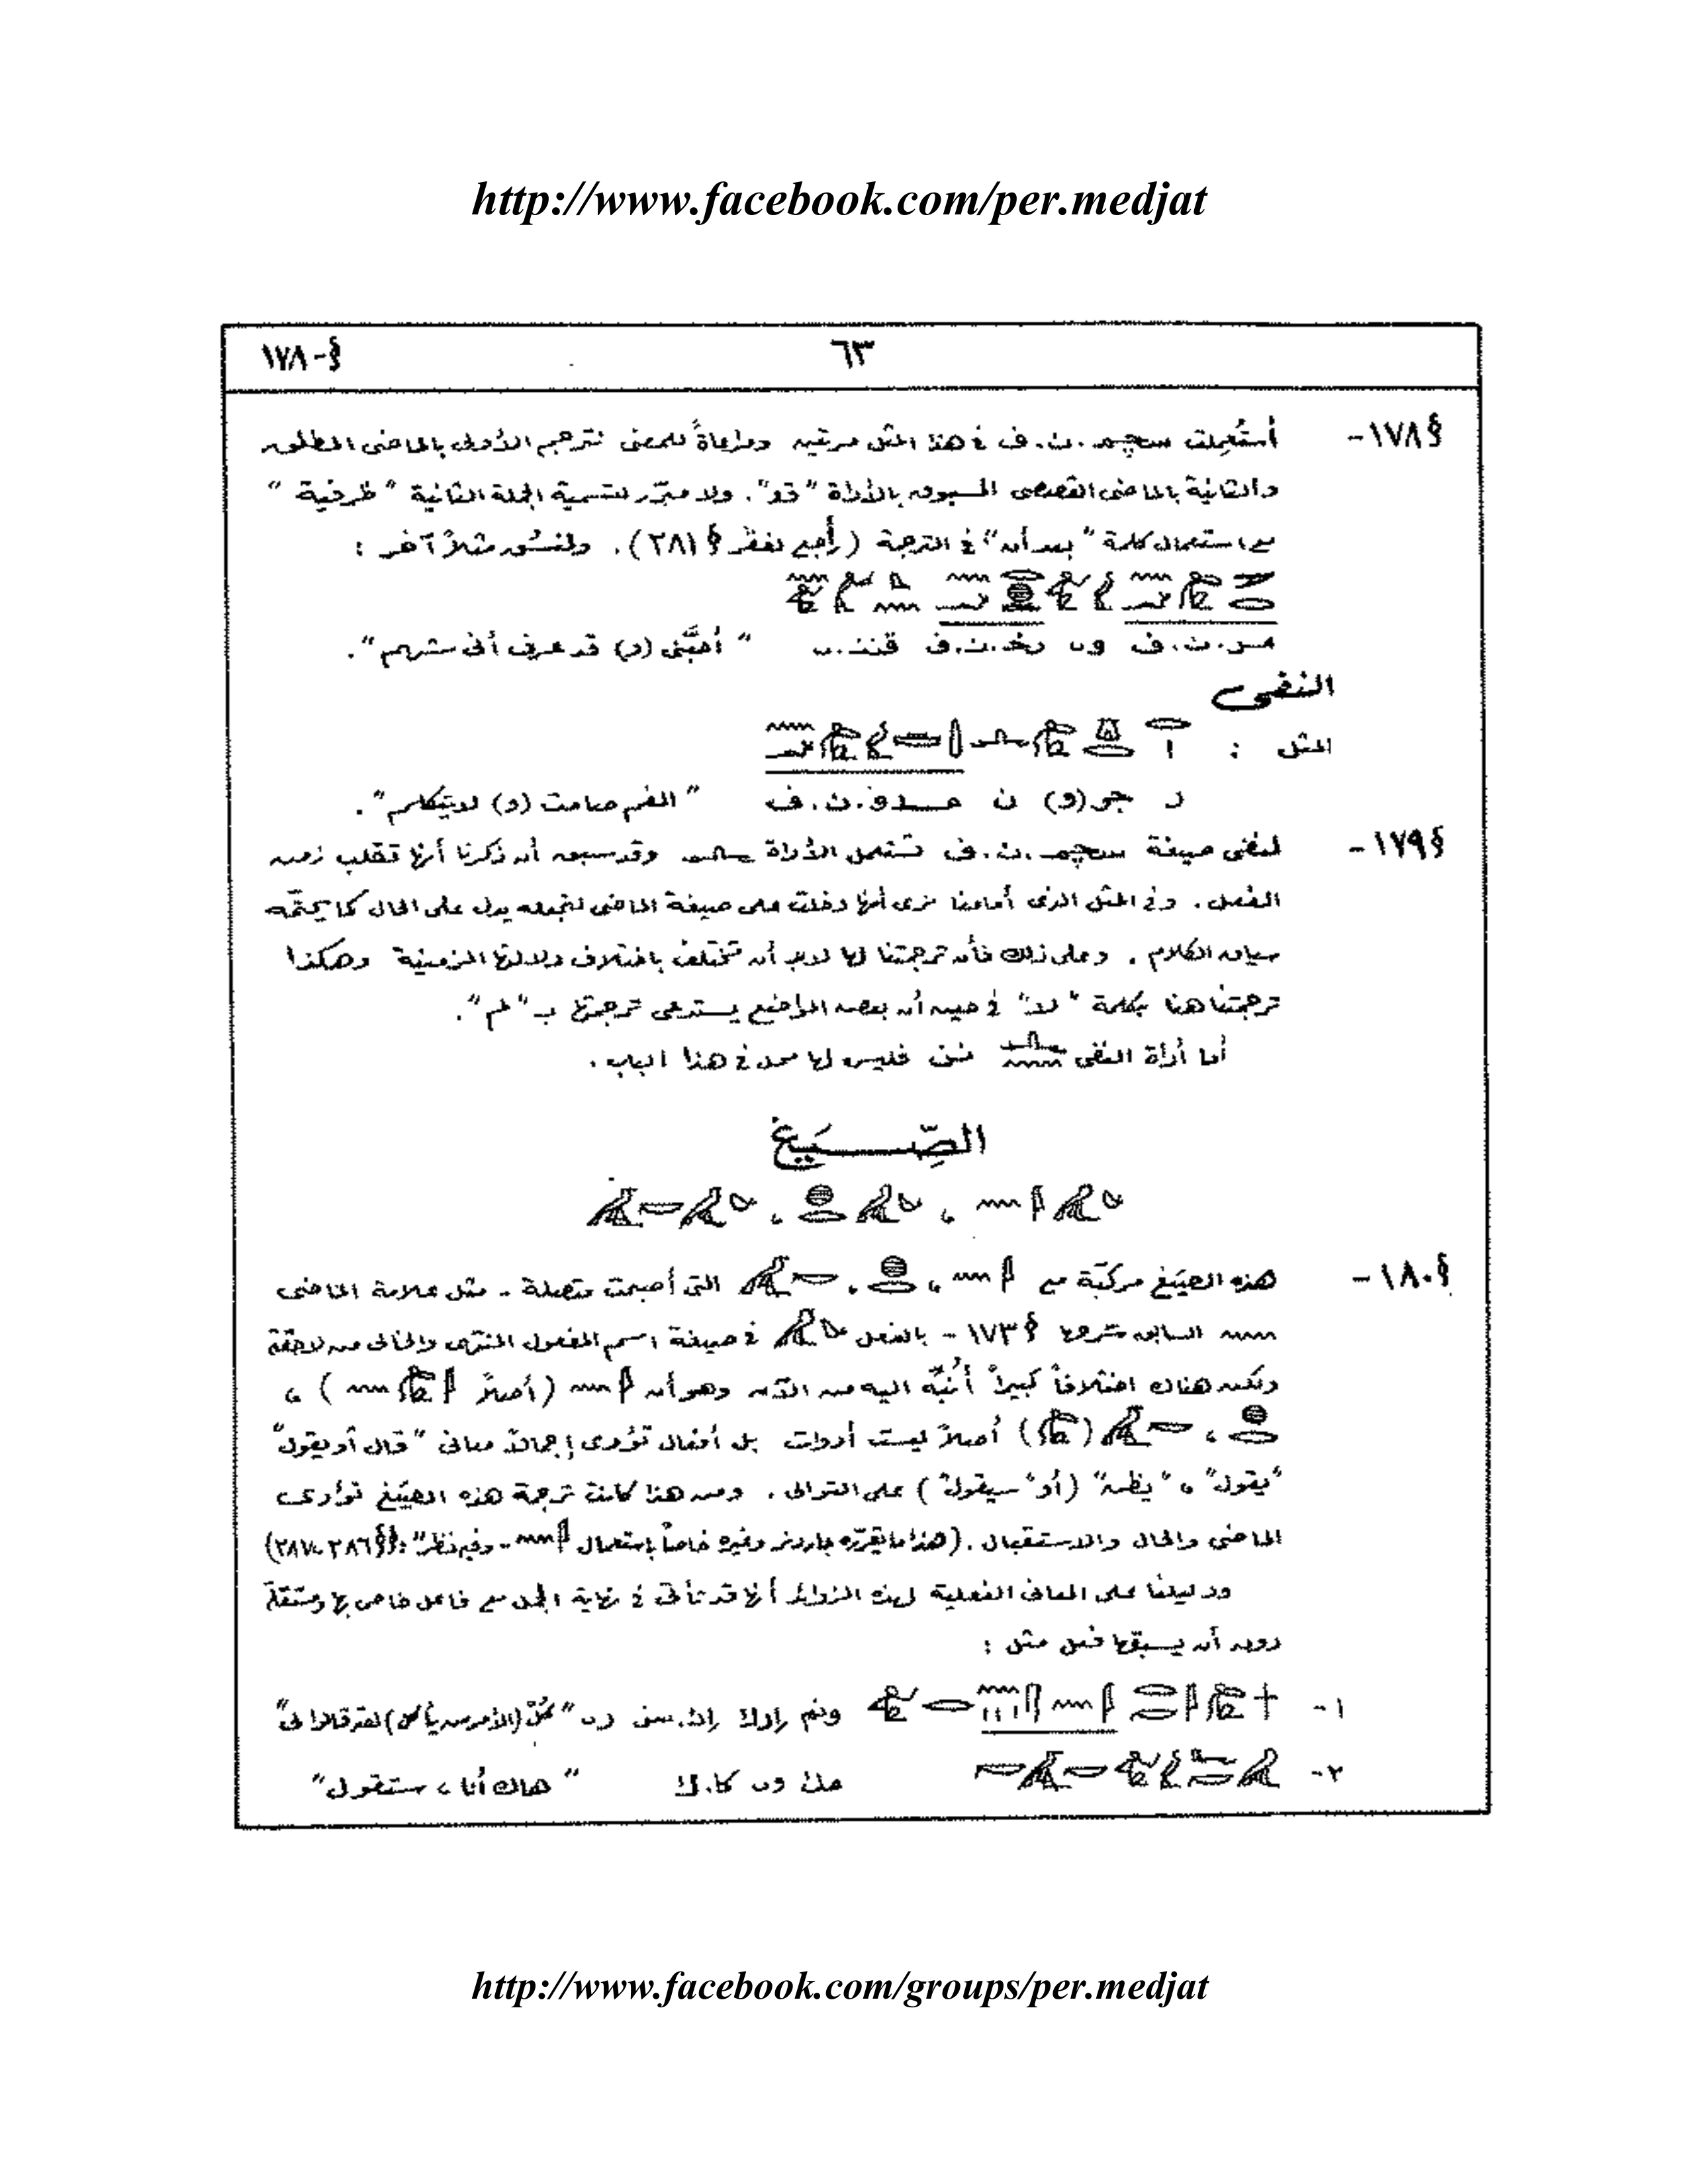 http://www.facebook.com/per.medjat
§-١٧٨ ٦٣
§١٧٨- أستُعمِلت سچم.ن.ف في هذا المثل مرتين ومراعاةً للمعنى نترجم الأولى بالماضى المطلق
والثانية بالماضى القصصى المسبوق بالأداة "قد". ولا مبرّر لتسمية الجملة الثانية "ظرفية"
مع استعمال كلمة "بعد أن" في الترجمة (راجع لفقر § ٢٨١). ولنسُق مثلاً آخر :
مر.ن.ف ون رخ.ن.ف قنن.ى "أحبَّنى (و) قد عرف أنى شهم".
النفى
المثل :
ر جر(و) ن مدو.ن.ف "الفم صامت (و) لا يتكلم".
§١٧٩- لنفى صيغة سچم.ن.ف تستعمل الأداة وقد سبق أن ذكرنا أنها تقلب زمن
الفعل. وفي المثل الذى أمامنا نرى أنها دخلت على صيغة الماضى لتجعله يدل على الحال كما يحتّمه
سياق الكلام. وعلى ذلك فأن ترجمتنا لها لابد أن تختلف باختلاف دلالتها الزمنية وهكذا
ترجمتنا هنا بكلمة "لا" في حين أن بعض المواضع يستدعى ترجمتها بـ "لم".
أما أداة النفى نن فليس لها محل في هذا الباب.
الصِّـيَغ
§١٨٠- هذه الصِيَغ مركبّة مع التى أصبحت متصلة - مثل علامة الماضى
السابق شرحها §١٧٣ - بالفعل في صيغة اسم المفعول المنتهى والخالى من لاحقة
ولكن هناك اختلافاً كبيراً أُنبِّه اليه من الآن وهو أن (أصلاً )،
، ( ) أصلاً ليست أدوات بل أفعال تؤدى إجمالاً معانى "قال أو يقول"
"يقول" ، "يظن" (أو "سيقول") على التوالى. ومن هنا كانت ترجمة هذه الصِيَغ تؤدى
الماضى والحال والاستقبال. (هذا ما يقرّره جاردنر وغيره خاصاً باستعمال - وفيه نظر": §§٢٨٦، ٢٨٧)
ودليلنا على المعانى الفعلية لهذه الزوائد أنها قد تأتى في نهاية الجمل مع فاعل خاص بها ومستقلة
دون أن يسبقها فعل مثل :
١-
٢- مك وى كا.ك "هاك أنا، ستقول"
http://www.facebook.com/groups/per.medjat